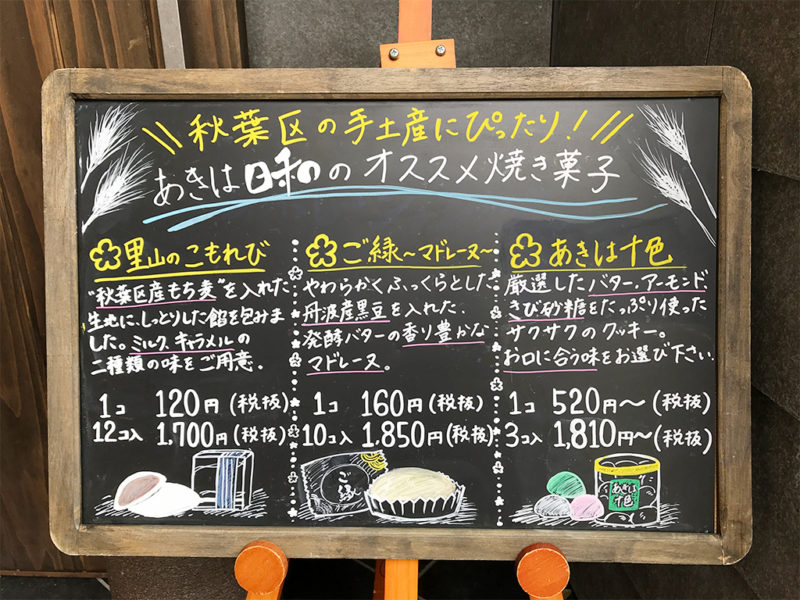 秋葉区の手土産にぴったり!
あきは日和のオススメ焼き菓子
里山のこもれび
"秋葉区産もち麦"を入れた
生地に、しっとりした餡を包みま
した。ミルク、キャラメルの
二種類の味をご用意。
1コ 120円(税抜)
12コ入 1.700円(税抜)
ご縁〜マドレーヌ〜
やわらかくふっくらとした
丹波産黒豆を入れた、
発酵バターの香り豊かな
マドレーヌ。
1コ 160円(税抜)
10コ入 1.850円(税抜)
ご縁
あきは十色
厳選したバター、アーモンド、
きび砂糖をたっぷり使った
サクサクのクッキー。
お口に合う味をお選び下さい.
1コ 520円〜(税抜)
3コ入 1,810円〜(税抜)
あきは
十色